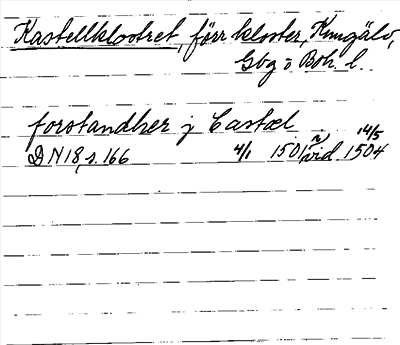 Kastellklostret, förr kloster, Kungälv,
Gbg o Boh. l.
forstandher j Castæl
DN18, s. 166 4/1 1501, vid. 14/5 1504